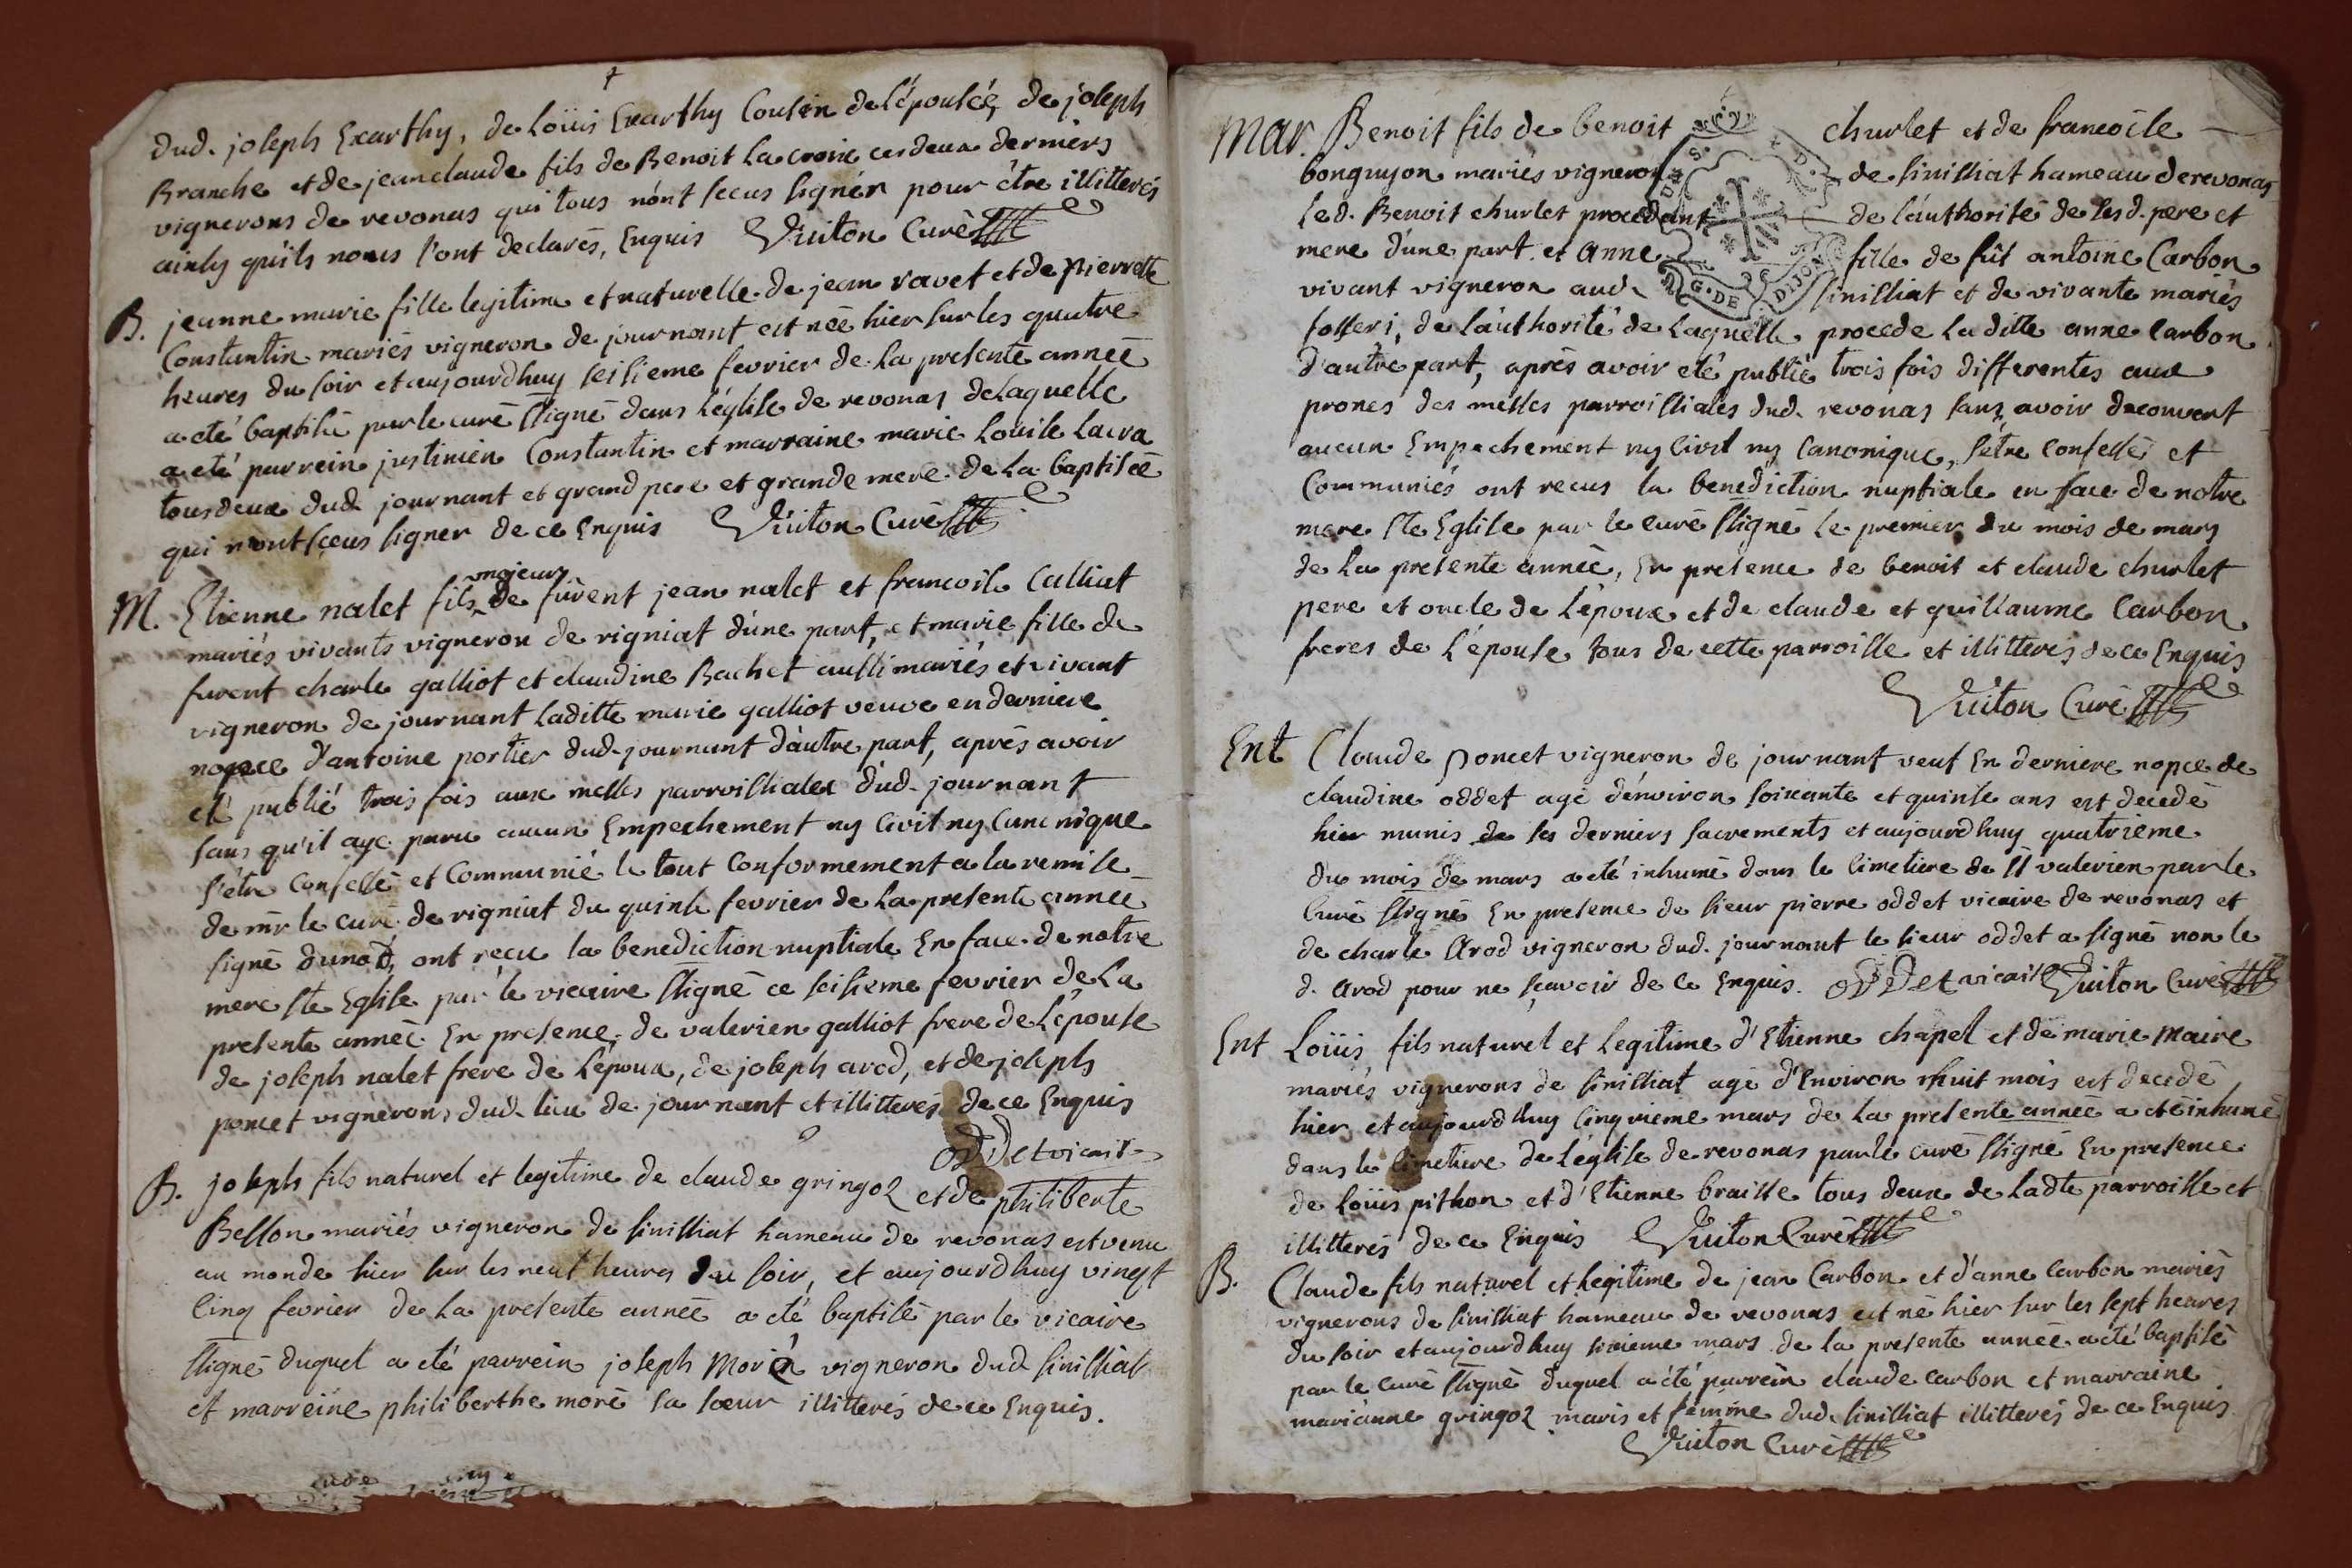 dud. joseph Exarthy, de Loüis Exarthy Cousin de L'épousée, de joseph
Branche et de jean claude fils de Benoit Lacroix ces deux derniers
vignerons de revonas qui tous n'ont sceus signér pour étre illitterés
ainsy qu'ils nous l'ont declarés, Enquis Vuiton Curé
B. jeanne marie fille legitime et naturelle de jean ravet et de pierrette
Constantin mariés vigneron de journant est née hier sur les quatre
heures du soir et aujourdhuy seisieme fevrier de la presente année
a eté baptisée par le curé ssigné dans L'église de revonas de Laquelle
a eté parrein justinien Constantin et marraine marie Louise Lacra
tous deux dud. journant et grand pere et grande mere de La baptisée
qui n'ont sceus signer de ce Enquis Vuiton Curé
M. Etienne nalet fils majeur de fûrent jean nalet et francoise Calliat
mariés vivants vigneron de rigniat d'une part, et marie fille de
furent charle galliot et claudine Bachet aussi mariés et vivant
vigneron de journant Laditte marie galliot veuve en derniere
nopce d'antoine portier dud. journant d'autre part, aprés avoir
eté publié trois fois aux messes parroissiales dud. journant
sans qu'il aye paru aucun Empechement ny Civil ny Canonique
s'étre Confessé et Communié le tout Conformement a la remise
de mr le curé de rigniat du quinse fevrier de La presente année
signé dunod, ont recu la benediction nuptiale En face de notre
mere ste Eglise par le vicaire ssigné ce seisieme fevrier de La
presente année En presence de valerien galliot frere de L'épouse
de joseph nalet frere de L'époux, de joseph arod, et de joseph
poncet vignerons dud. lieu de journant et illitterés de ce Enquis
oddet vicaire
B. joseph fils naturel et legitime de claude gringoz et de philiberte
Bellon mariés vigneron de sinissiat hameau de revonas est venu
au monde hier sur les neuf heures du soir, et aujourdhuy vingt
Cinq fevrier de La presente année a eté baptisé par le vicaire
ssigné duquel a eté parrein joseph Moré vigneron dud sinissiat
et marreine philiberthe moré sa soeur illitterés de ce Enquis.
Mar. Benoit fils de benoit churlet et de francoise
bonguyon mariés vigneron de sinissiat hameau de revonas
Led. Benoit churlet procedant de l'authorité de sesd. pere et
mere d'une part. et anne fille de fût antoine Carbon
vivant vigneron aud. sinissiat et de vivante mariés
fosseri, de l'authorité de Laquelle procede La ditte anne Carbon
d'autre part, aprés avoir eté publié trois fois differentes aux
prones des messes parroissiales dud. revonas sans avoir decouvert
aucun Empechement ny Civil ny Canonique, s'étre Confessés et
Communiés ont recus la benediction nuptiale en face de notre
mere ste Eglise par le curé ssigné le premier du mois de mars
de La presente année, En presence de benoit et claude churlet
pere et oncle de L'époux et de claude et guillaume Carbon
freres de L'épouse tous de cette parroisse et illitterés de ce Enquis
Vuiton Curé
G. DE DIJON
Ent Claude poncet vigneron de journant veuf En derniere nopce de
claudine oddet agé d'environ soixante et quinse ans est decedé
hier munis de ses derniers sacrements et aujourdhuy quatrieme
du mois de mars a eté inhumé dans le Cimetiere de st valerien par le
Curé ssigné En presence de sieur pierre oddet vicaire de revonas et
de charle Arod vigneron dud. journant le sieur oddet a signé non le
d. Arod pour ne sçavoir de ce Enquis. oddet vicaire Vuiton Curé
Ent Loüis fils naturel et Legitime d'Etienne chapel et de marie Maire
mariés vignerons de sinissiat agé d'Environ huit mois est decedé
hier et aujourdhuy Cinqvieme mars de La presente année a eté inhumé
dans le Cimetiere de L'église de revonas par le curé ssigné En presence
de Loüis pithon et d'Etienne braisse tous deux de Ladte parroisse et
illitterés de ce Enquis Vuiton Curé
B. Claude fils naturel et Legitime de jean Carbon et d'anne Carbon mariés
vignerons de sinissiat hameau de revonas est né hier sur les sept heures
du soir et aujourdhuy sixieme mars de la presente année a eté baptisé
par le Curé ssigné duquel a été parrein claude Carbon et marraine
marianne gringoz maris et femme dud. sinissiat illitterés de ce Enquis
Vuiton Curé